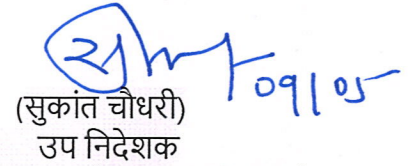 09/05
(सुकांत चौधरी)
उप निदेशक